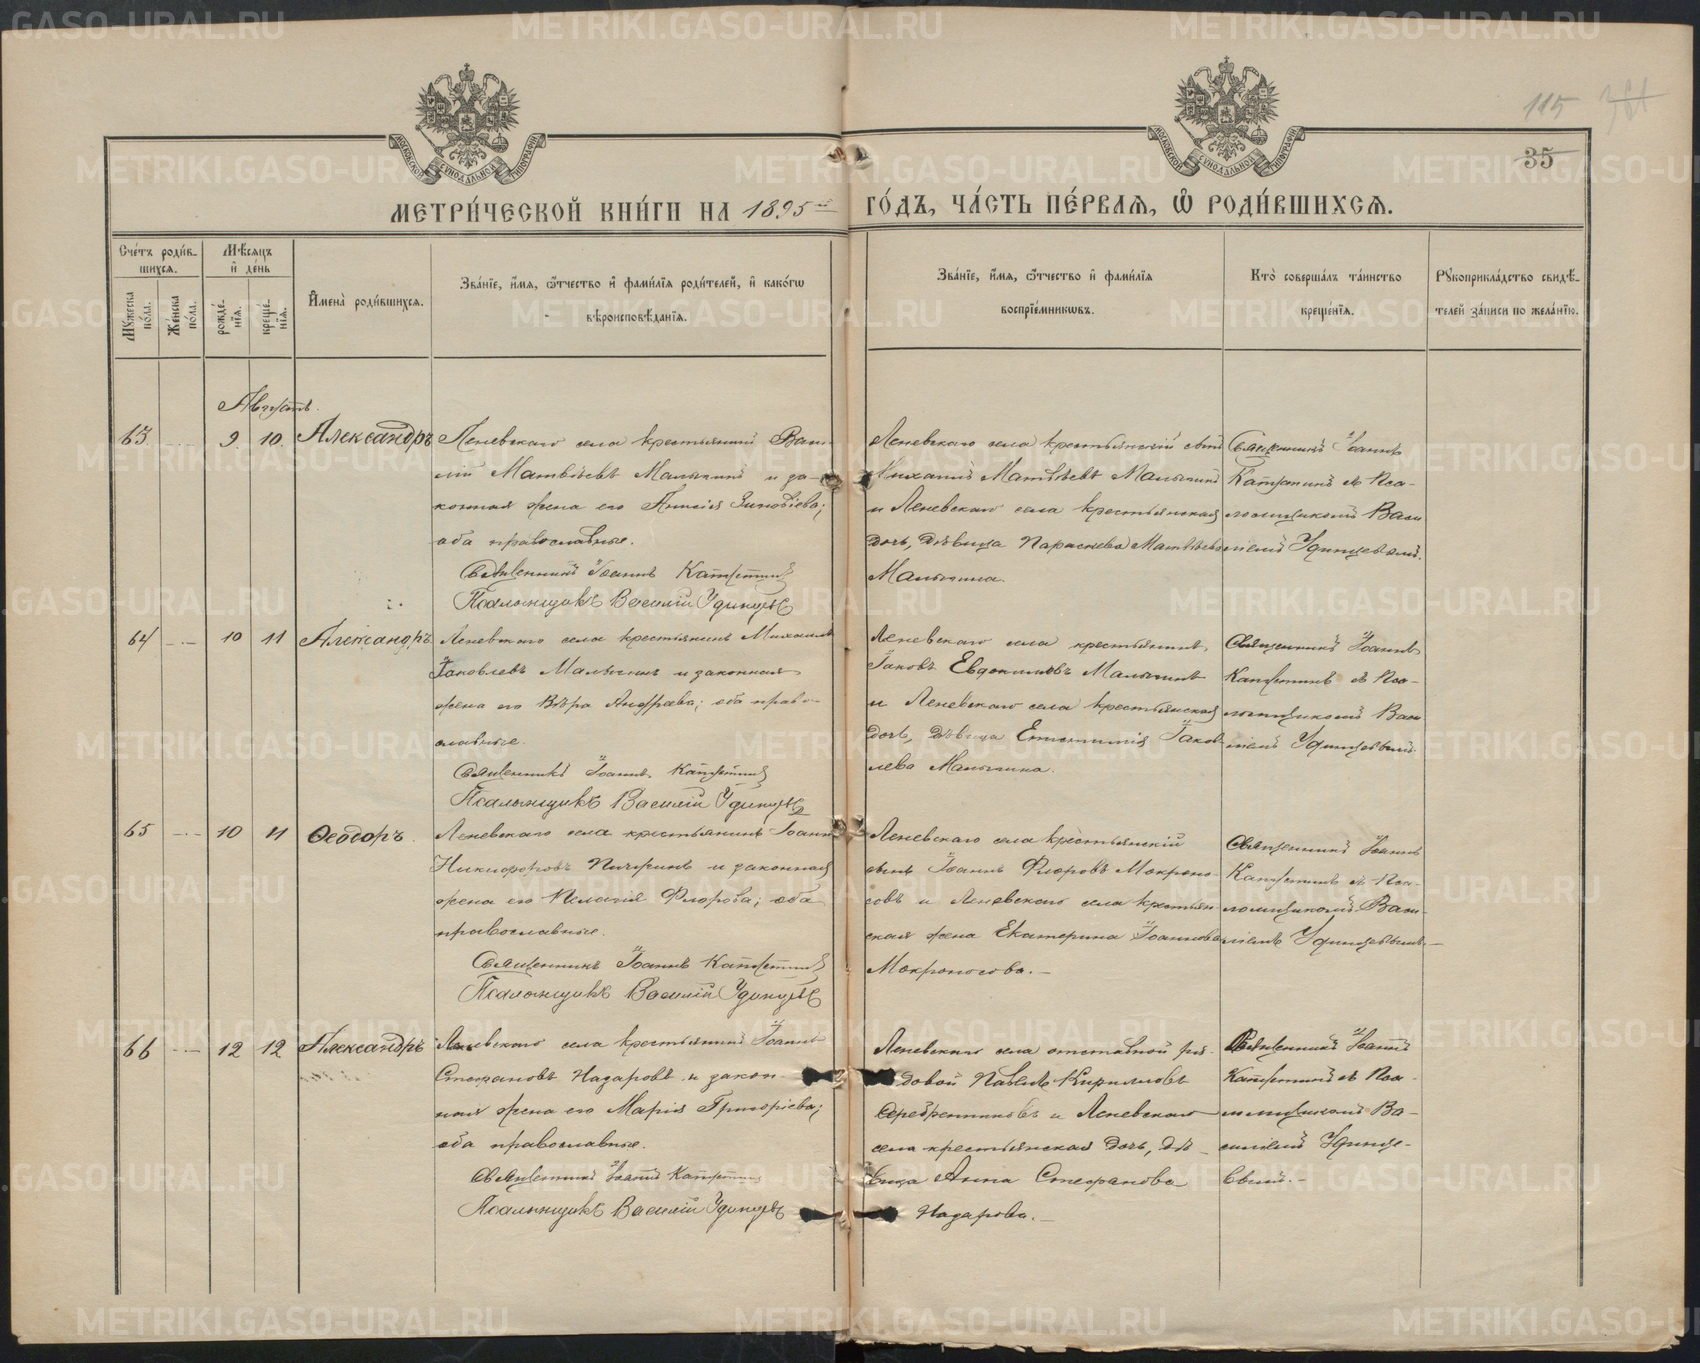 115
35
МЕТРИ́ЧЕСКОЙ КНИ́ГИ НА 1895й ГО́ДЪ, ЧА́СТЬ ПЕ́РВАЯ, Ѿ РОДИ́ВШИХСЯ.
МОСКОВСКОЙ СѴНОДАЛЬНОЙ ТИПОГРАФІИ
МОСКОВСКОЙ СѴНОДАЛЬНОЙ ТИПОГРАФІИ
Сче́тъ роди́в-
шихся.
Мꙋжеска по́ла.
Же́нска по́ла.
Мѣ́сяцъ
и҆ де́нь
рожде́-
нїя.
креще́-
нїя.
И҆мена̀ роди́вшихся.
Зва́нїе, и҆́мя, ѻ҆́тчество и҆ фами́лїя роди́телей, и҆ како́гѡ
вѣроисповѣ́данїя.
Зва́нїе, и҆́мя, ѻ҆́тчество и҆ фами́лїя
воспрїе́мникѡвъ.
Кто̀ соверша́лъ та́инство
креще́нїя.
Рꙋкоприкла́дство свидѣ́-
телей за́писи по жела́нїю.
Августъ.
63 9 10. Александръ
Леневскаго села крестьянинъ Васи-
лій Матвѣевъ Малыгинъ и за-
конная жена его Зиновіева;
оба православные.
Священникъ Іоаннъ
Псаломщикъ Василій Удинцевъ
Леневскаго села крестьянскій сынъ
Михаилъ Матвѣевъ Малыгинъ
и Леневскаго села крестьянская
дочь, дѣвица Параскева Матвѣева
Малыгина.
Священникъ Іоаннъ
съ Пса-
ломщикомъ Васи-
ліемъ Удинцевымъ.
64 10 11 Александръ
Леневскаго села крестьянинъ Михаилъ
Іаковлевъ Малыгинъ и законная
жена его Вѣра; оба право-
славные.
Священникъ Іоаннъ
Псаломщикъ Василій Удинцевъ
Леневскаго села крестьянинъ
Іаковъ Евдокимовъ Малыгинъ
и Леневскаго села крестьянская
дочь, дѣвица Іаков-
лева Малыгина.
Священникъ Іоаннъ
съ Пса-
ломщикомъ Васи-
ліемъ Удинцевымъ.
65 10 11 Ѳеодоръ.
Леневскаго села крестьянинъ Іоаннъ
Никифоровъ и законная
жена его Пелагія Флорова; оба
православные.
Священникъ Іоаннъ
Псаломщикъ Василій Удинцевъ
Леневскаго села крестьянскій
сынъ Іоаннъ Флоровъ Мокроно-
совъ и Леневскаго села крестьян-
ская жена Екатерина Іоаннова
Мокроносова. —
Священникъ Іоаннъ
съ Пса-
ломщикомъ Васи-
ліемъ Удинцевымъ. —
66 12 12 Александръ
Леневскаго села крестьянинъ Іоаннъ
Стефановъ Назаровъ и закон-
ная жена его Марія Григоріева;
оба православные.
Священникъ Іоаннъ
Псаломщикъ Василій Удинцевъ
Леневскаго села отставной ря-
довой Павелъ Кирилловъ
Серебренниковъ и Леневскаго
села крестьянская дочь, дѣ-
вица Анна Стефанова
Назарова. —
Священникъ Іоаннъ
съ Пса-
ломщикомъ Ва-
силіемъ Удинце-
вымъ. —
METRIKI.GASO-URAL.RU